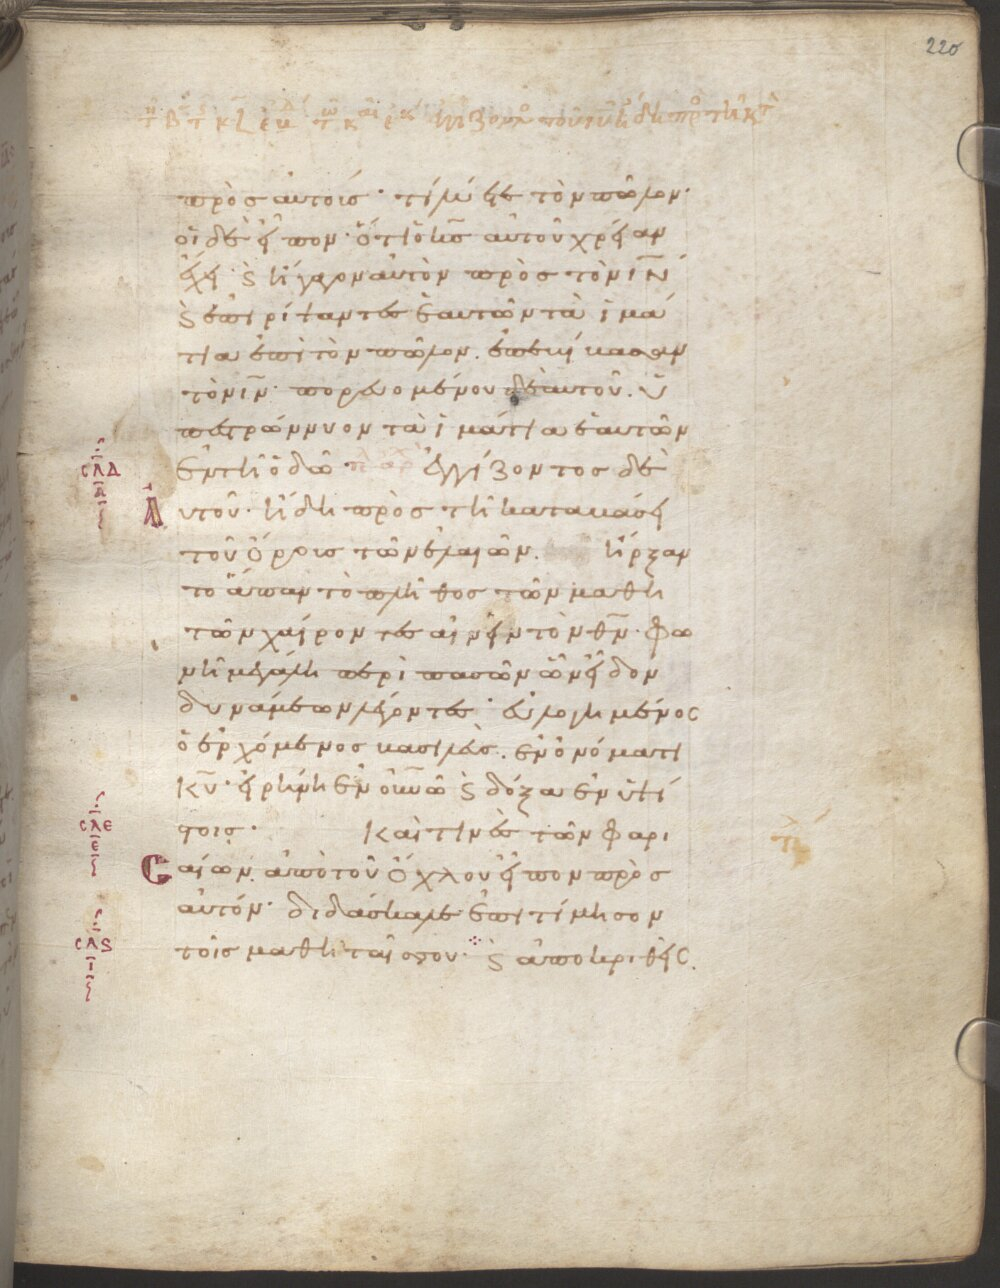 220
πρὸς αὐτούς· τί λύετε τὸν πῶλον·
οἱ δὲ εἶπον· ὅτι ὁ κ̅ς̅ αὐτοῦ χρείαν
ἔχει· ϗ ἤγαγον αὐτὸν πρὸς τὸν ι̅ν̅
ϗ ἐπιρίψαντες ἑαυτῶν τὰ ἱμά
τια ἐπὶ τὸν πῶλον. ἐπεβίβασαν
τὸν ι̅ν̅· πορευομένου δὲ αὐτοῦ. ὑ
πεστρώννυον τὰ ἱμάτια ἑαυτῶν
ἐν τῆ ὁδῶ· ἐγγίζοντος δὲ
σλδ
αυτοῦ· ἤδη πρὸς τῆ καταβάσει
τοῦ ὄρους τῶν ἐλαιῶν. ἤρξαν
το ἅπαν τὸ πλῆθος τῶν μαθη
τῶν χαίροντες αἰνεῖν τὸν θ̅ν̅· φω
νῆ μεγάλη περὶ πασῶν ὧν εἶδον
δυνάμεων λέγοντες· εὐλογημένος
ὁ ἐρχόμενος βασιλεὺς. ἐν ὀνόματι
κ̅υ̅· εἰρήνη ἐν ο̅υ̅ν̅ῶ ϗ δόξα ἐν ὑψί
στοις· Καί τινες τῶν φαρι
σλε
σαίων. ἀπὸ τοῦ ὄχλου εἶπον πρὸς
αὐτόν· διδάσκαλε ἐπιτίμησον
σλς
τοῖς μαθηταῖς σου· ϗ ἀποκριθεὶς